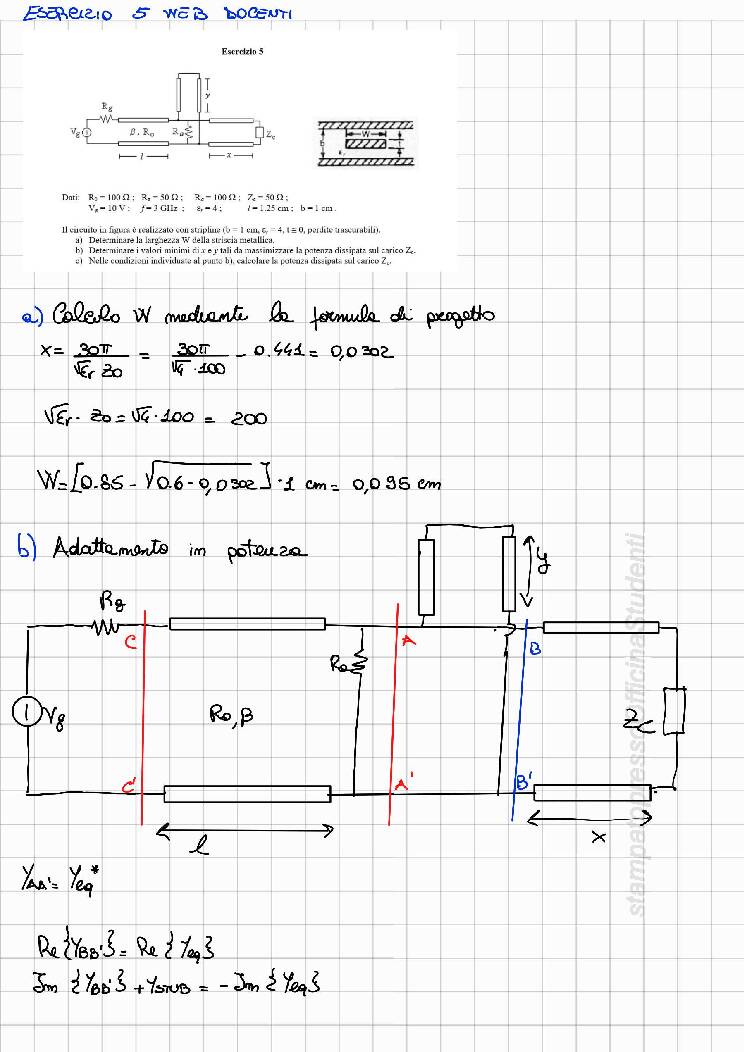 ESERCIZIO 5 WEB DOCENTI
Esercizio 5
y
Rg
Vg
β, R₀
Ra
Zc
l
x
W
b
t
εr
Dati: R₀ = 100 Ω ; Rg = 50 Ω ; Ra = 100 Ω ; Zc = 50 Ω ;
Vg = 10 V ; f = 3 GHz ; εr = 4 ; l = 1.25 cm ; b = 1 cm .
Il circuito in figura è realizzato con stripline (b = 1 cm, εr = 4, t ≅ 0, perdite trascurabili).
a) Determinare la larghezza W della striscia metallica.
b) Determinare i valori minimi di x e y tali da massimizzare la potenza dissipata sul carico Zc.
c) Nelle condizioni individuate al punto b), calcolare la potenza dissipata sul carico Zc.
a) Calcolo W mediante la formula di progetto
x = 30π / √εr Z0 = 30π / √4 · 100 - 0.441 = 0,0302
√εr · Z0 = √4 · 100 = 200
W = [0.85 - √0.6 - 0,0302] · 1 cm = 0,095 cm
b) Adattamento in potenza
y
Rg
C
A
B
Ra
Vg
R0, β
Zc
C'
A'
B'
l
x
YAA' = Yeq*
Re{YBB'} = Re{Yeq}
Im {YBB'} + YSTUB = - Im {Yeq}
stampato presso officinaStudenti